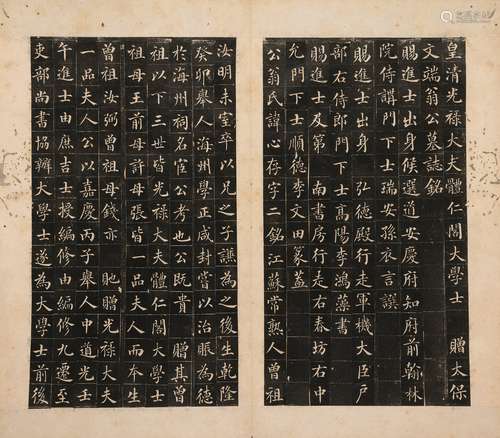 皇清光祿大夫體仁閣大學士 贈太保
文端翁公墓誌銘
賜進士出身候選道安慶府知府前翰林
院侍講門下士瑞安孫衣言譔
賜進士出身 弘德殿行走軍機大臣戶
部右侍郎門下士高陽李鴻藻書
賜進士及第 南書房行走右春坊右中
允門下士順德李文田篆蓋
公翁氏諱心存字二銘江蘇常熟人曾祖
汝明未室卒以兄之子謙為之後生乾隆
癸卯舉人海州學正咸封嘗以治賑為德
於海州祠名宦公考也公既貴 贈其曾
祖以下三世皆光祿大夫體仁閣大學士
祖母王前母許母張皆一品夫人而本生
曾祖汝弼曾祖母錢亦 貤贈光祿大夫
一品夫人公以嘉慶丙子舉人中道光壬
午進士由庶吉士授編修由編修九遷至
吏部尚書協辦大學士遂為大學士前後